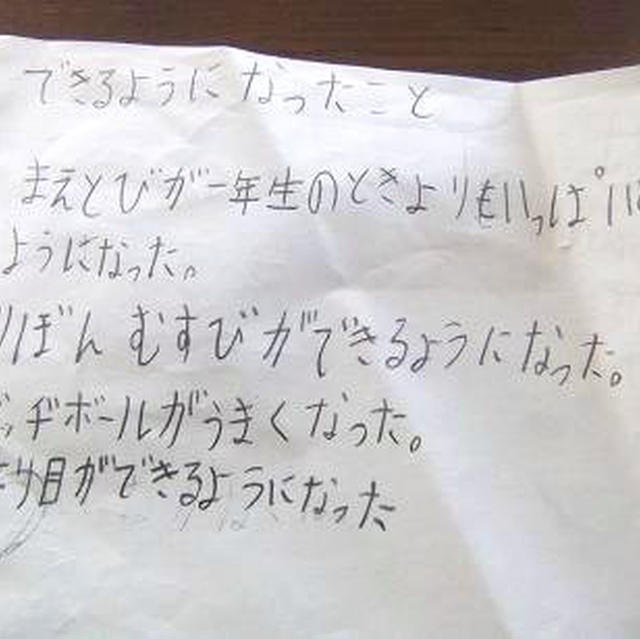 できるように なったこと
まえとびが一年生のときよりもいっぱい
ように なった。
りぼん むすびができるように なった。
ッヂボールがうまく なった。
り目ができるように なった